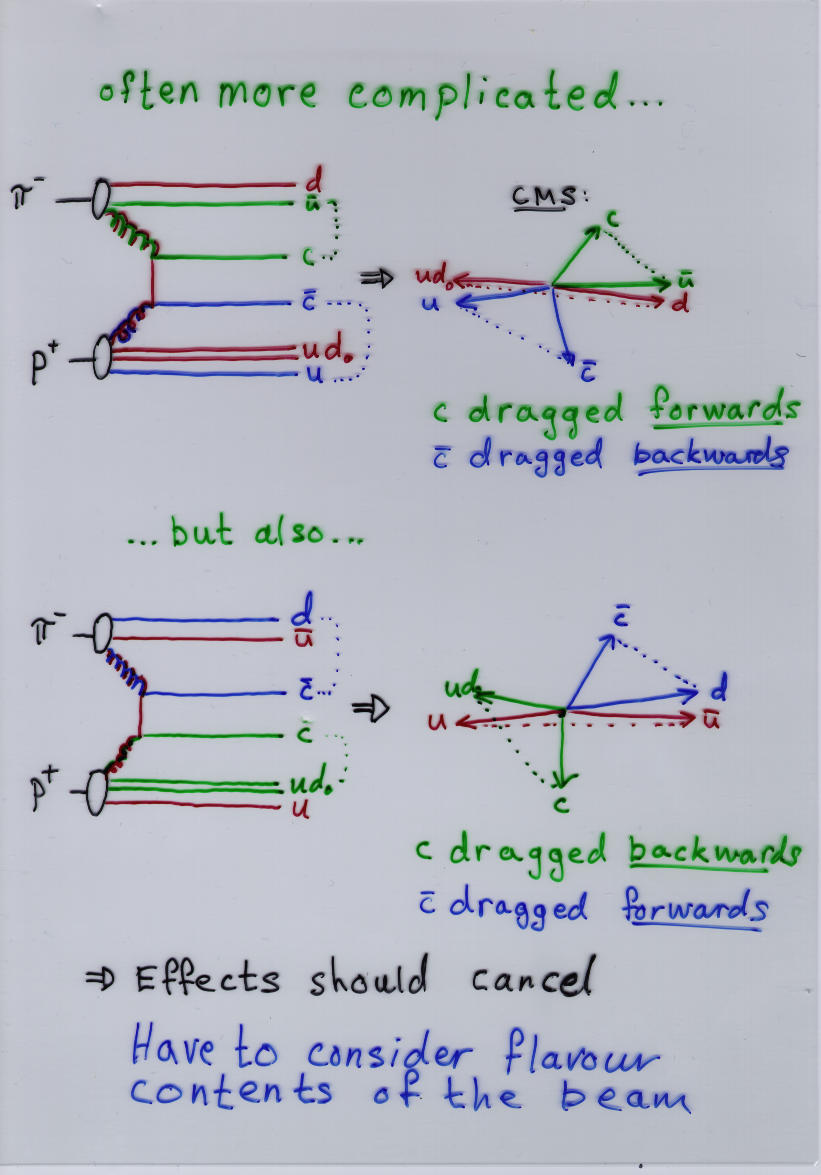 often more complicated...
π⁻
d
ū
c
c̄
p⁺
ud₀
u
⇒
CMS:
c
ud₀
ū
u
d
c̄
c dragged forwards
c̄ dragged backwards
...but also...
π⁻
d
ū
c̄
c
p⁺
ud₀
u
⇒
c̄
ud₀
d
u
ū
c
c dragged backwards
c̄ dragged forwards
⇒ Effects should cancel
Have to consider flavour
contents of the beam